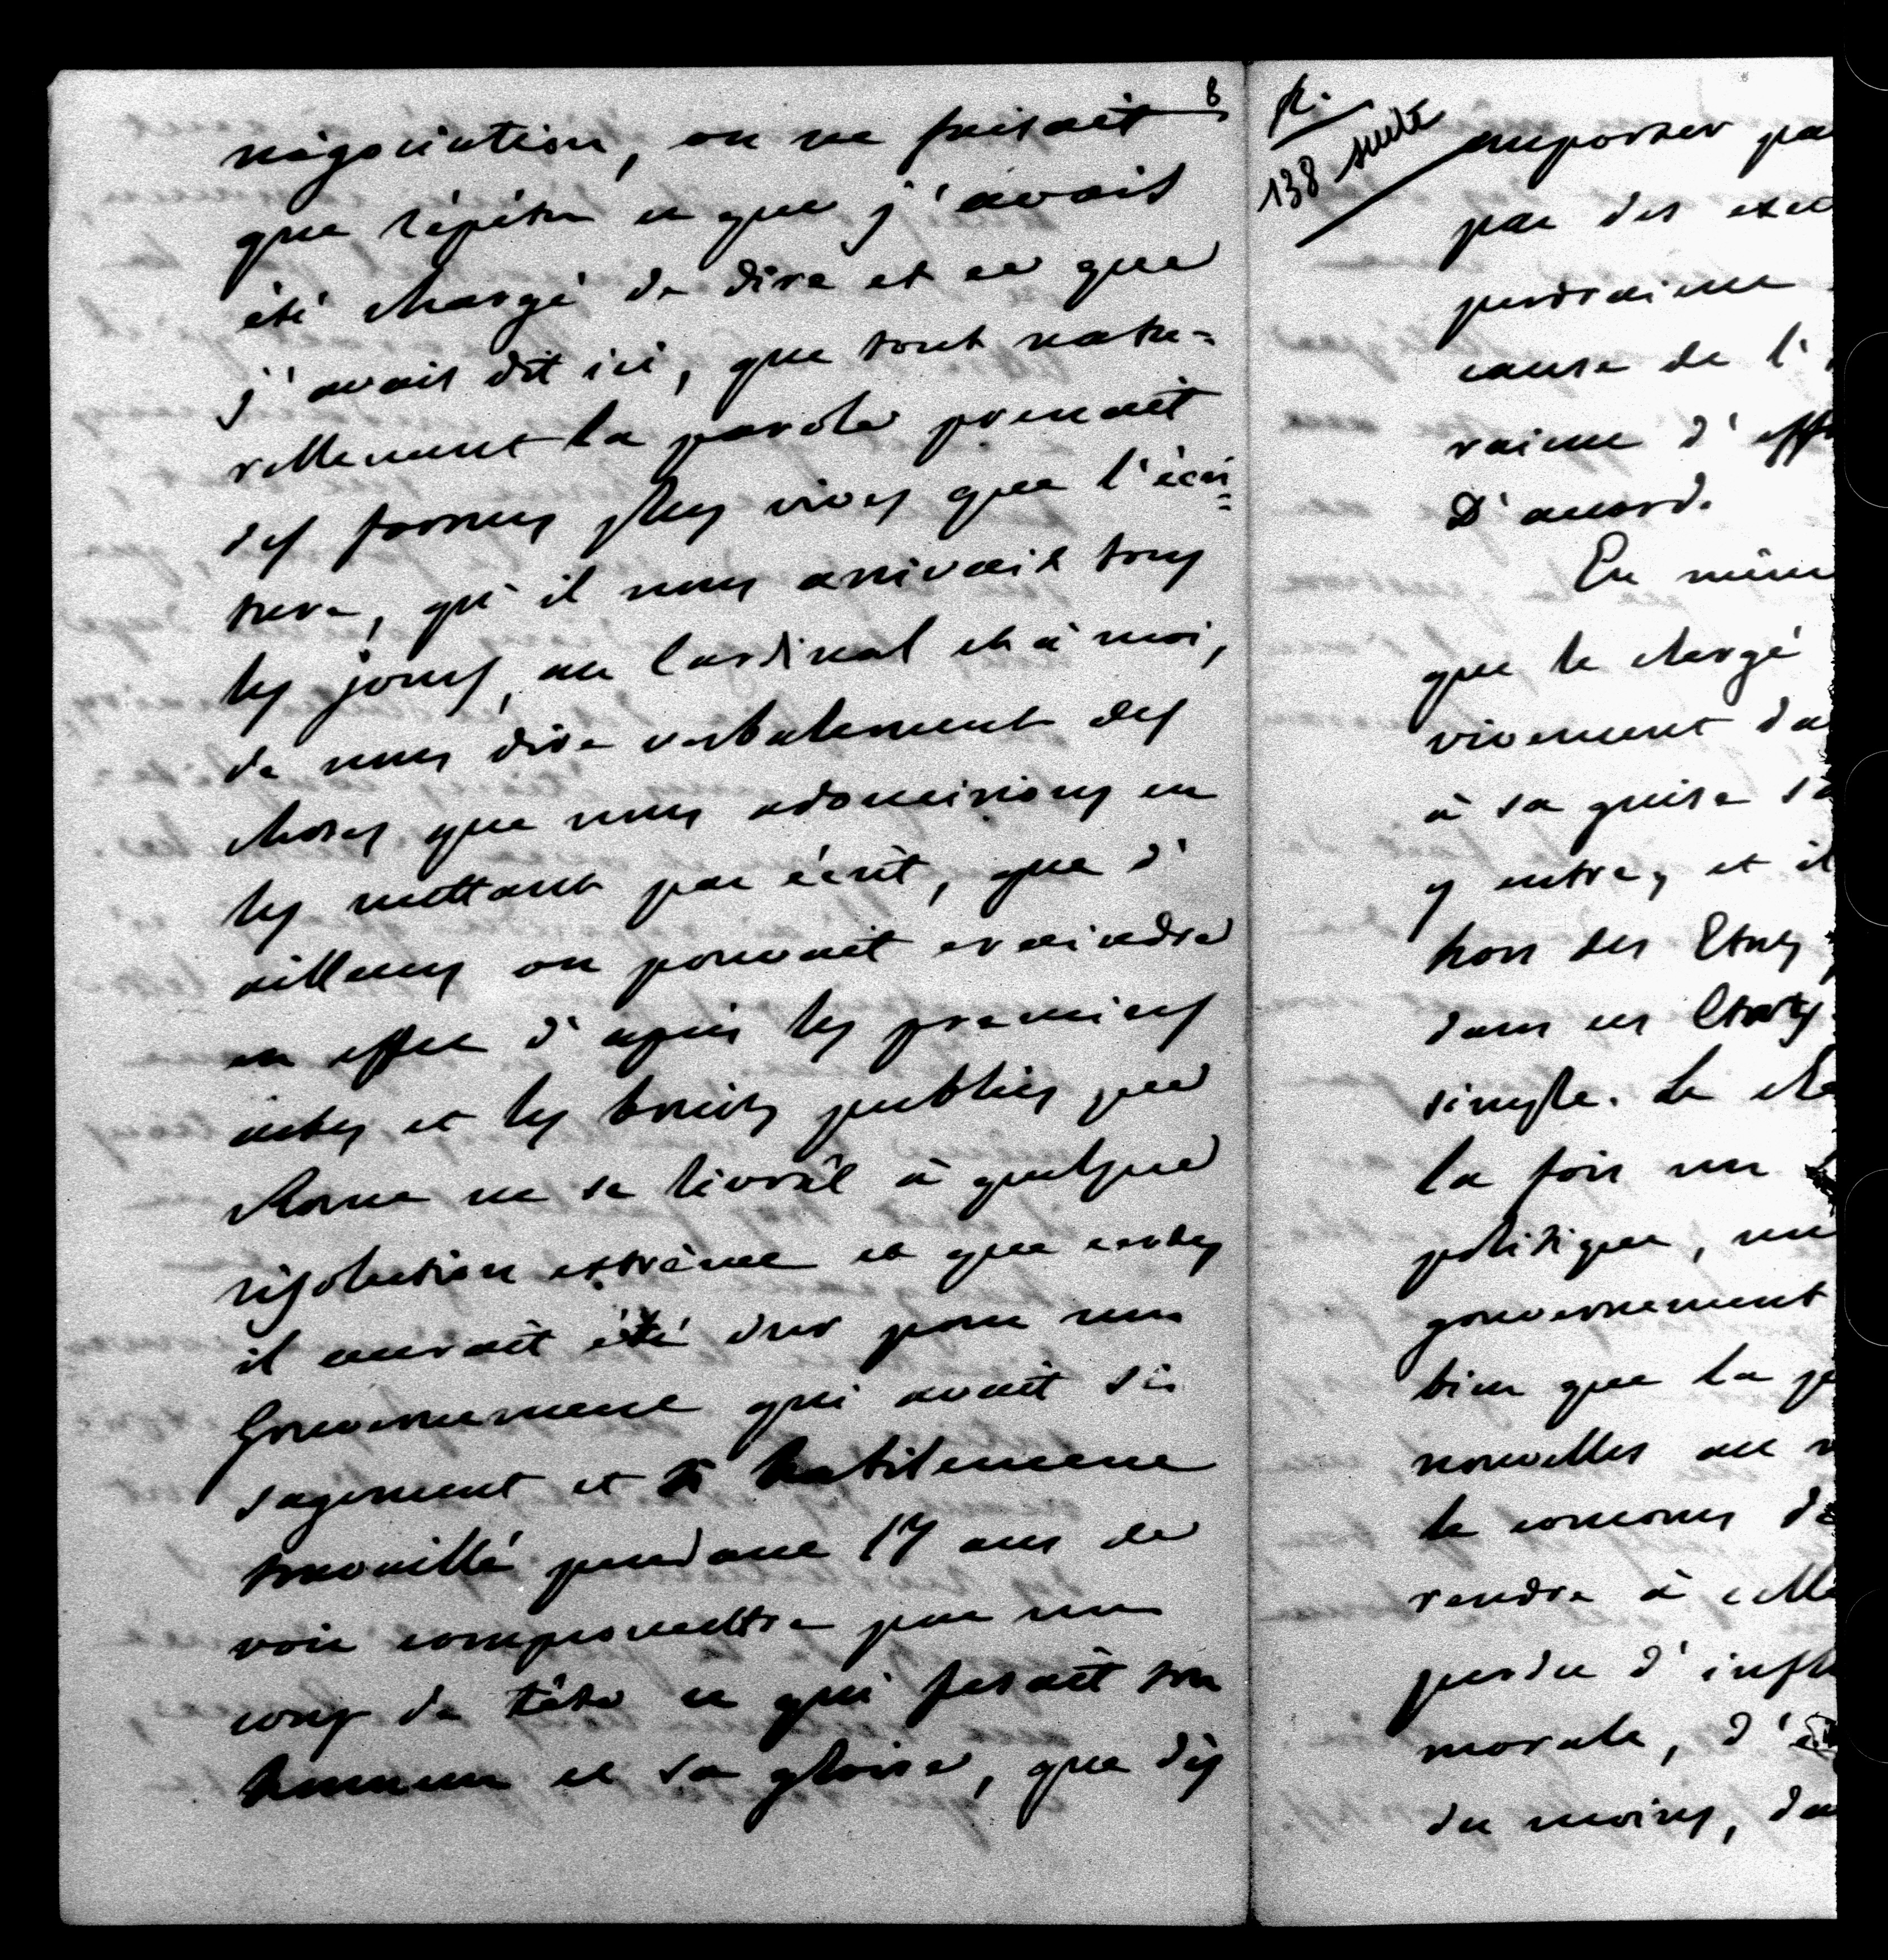 8
négociation, on ne faisait
que répéter ce que j'avais
été chargé de dire et ce que
j'avais dit ici, que tout natu=
rellement la parole prenait
des formes plus vives que l'écri=
ture, qu'il nous arrivait tous
les jours, au Cardinal et à moi,
de nous dire verbalement des
choses que nous adoucissions en
les mettant par écrit, que d'
ailleurs on pouvait craindre
en effet d'après les premiers
actes et les bruits publics que
Rome ne se livrât à quelque
résolution extrême et que certes
il aurait été dur pour un
Gouvernement qui avait si
sagement et si habilement
travaillé pendant 17 ans de
voir compromettre par un
coup de tête ce qui fesait son
honneur et sa gloire, que dès
R.
138 suite
emporter pa
par des exc
perdraient
cause de l'
raient d'eff
D'accord.
En même
que le chargé
vivement da
à sa guise
y entre, et il
hors des Etats
dans ces Etats
simple. Le
la fois un
politique, un
gouvernement
bien que la
nouvelles au
le concours de
rendre à celle
perdu d'infl
morale, d'
du moins, da